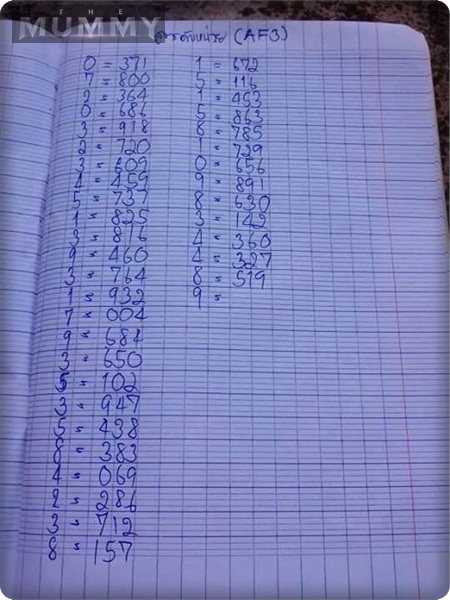 THE
MUMMY
(AF3)
0 = 371
7 = 800
2 = 364
0 = 686
3 = 918
2 " 720
3 " 609
1 " 459
5 " 737
1 " 825
3 " 876
9 " 460
3 " 764
1 " 932
7 " 004
9 " 684
3 " 650
" 102
3 " 947
5 " 438
8 " 383
4 " 069
2 " 286
3 " 712
8 " 157
1 = 672
5 = 116
1 " 453
5 " 863
8 " 785
1 " 729
0 " 656
9 " 891
8 " 630
3 " 142
4 " 360
4 " 327
8 " 519
9 "